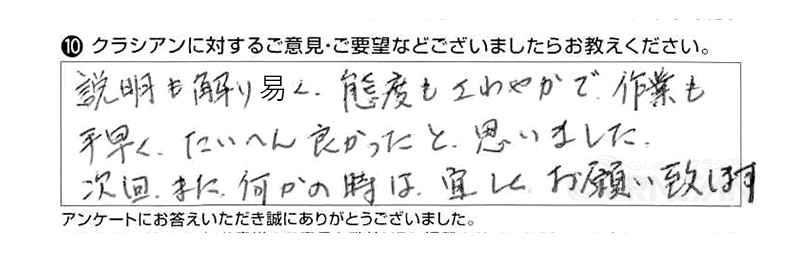 ⑩ クラシアンに対するご意見・ご要望などございましたらお教えください。
説明も解り易く、態度もさわやかで、作業も
手早く、たいへん良かったと、思いました。
次回、また、何かの時は、宜しく、お願い致します
アンケートにお答えいただき誠にありがとうございました。